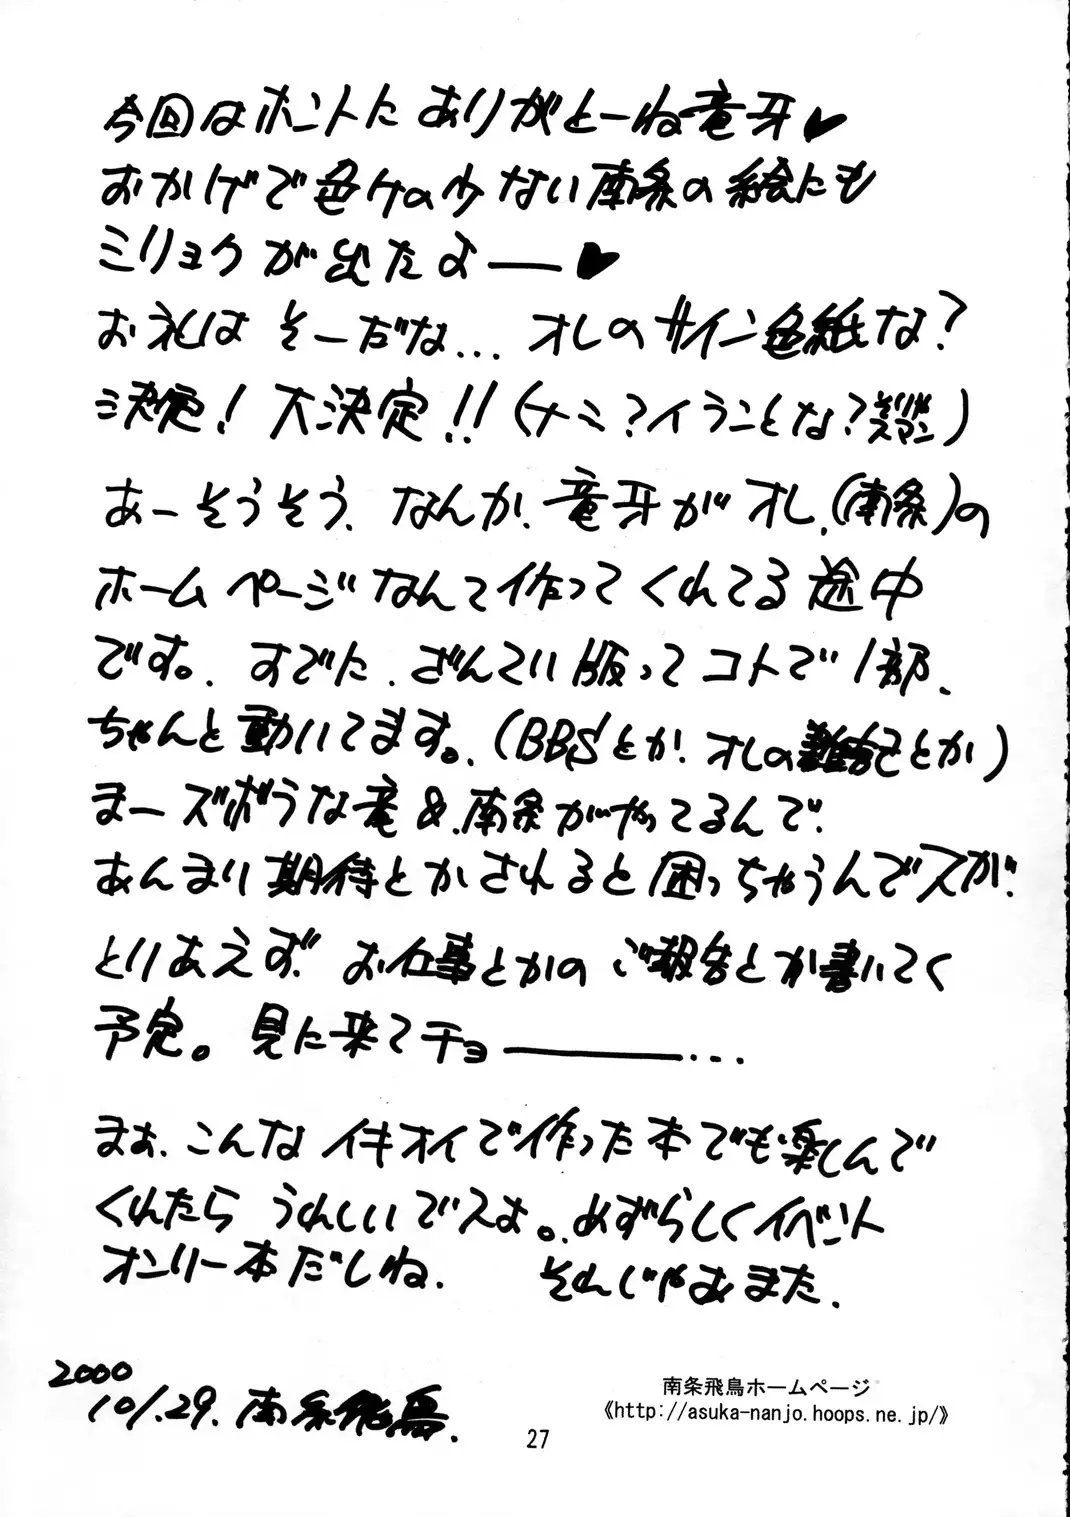 今回はホントに ありがとーね竜牙♥
おかげで色ケの少ない南条の絵にも
ミリョクが出たよー♥
お礼は そーだな... オレのサイン色紙な?
決定! 大決定!! (ナミ?イランことな?そりゃスマン)
あーそうそう. なんか. 竜牙がオレ.(南条)の
ホームページなんて作ってくれてる途中
です。. すでに. ざんてい版ってコトで1部.
ちゃんと動いてます。. (BBSとか. オレの雑記とか)
まーズボうな竜&.南条がやってるんで.
あんまり期待とかされると困っちゃうんでスが.
とりあえず. お仕事とかの ご報告とか書いてく
予定。 見に来てチョー...
まぁ. こんな イキオイで作った本でも楽しんで
くれたら うれしいでスよ。. めずらしくイベント
オンリー本だしね. それじゃあまた.
2000
10/.29. 南条飛鳥.
南条飛鳥ホームページ
《http://asuka-nanjo.hoops.ne.jp/》
27